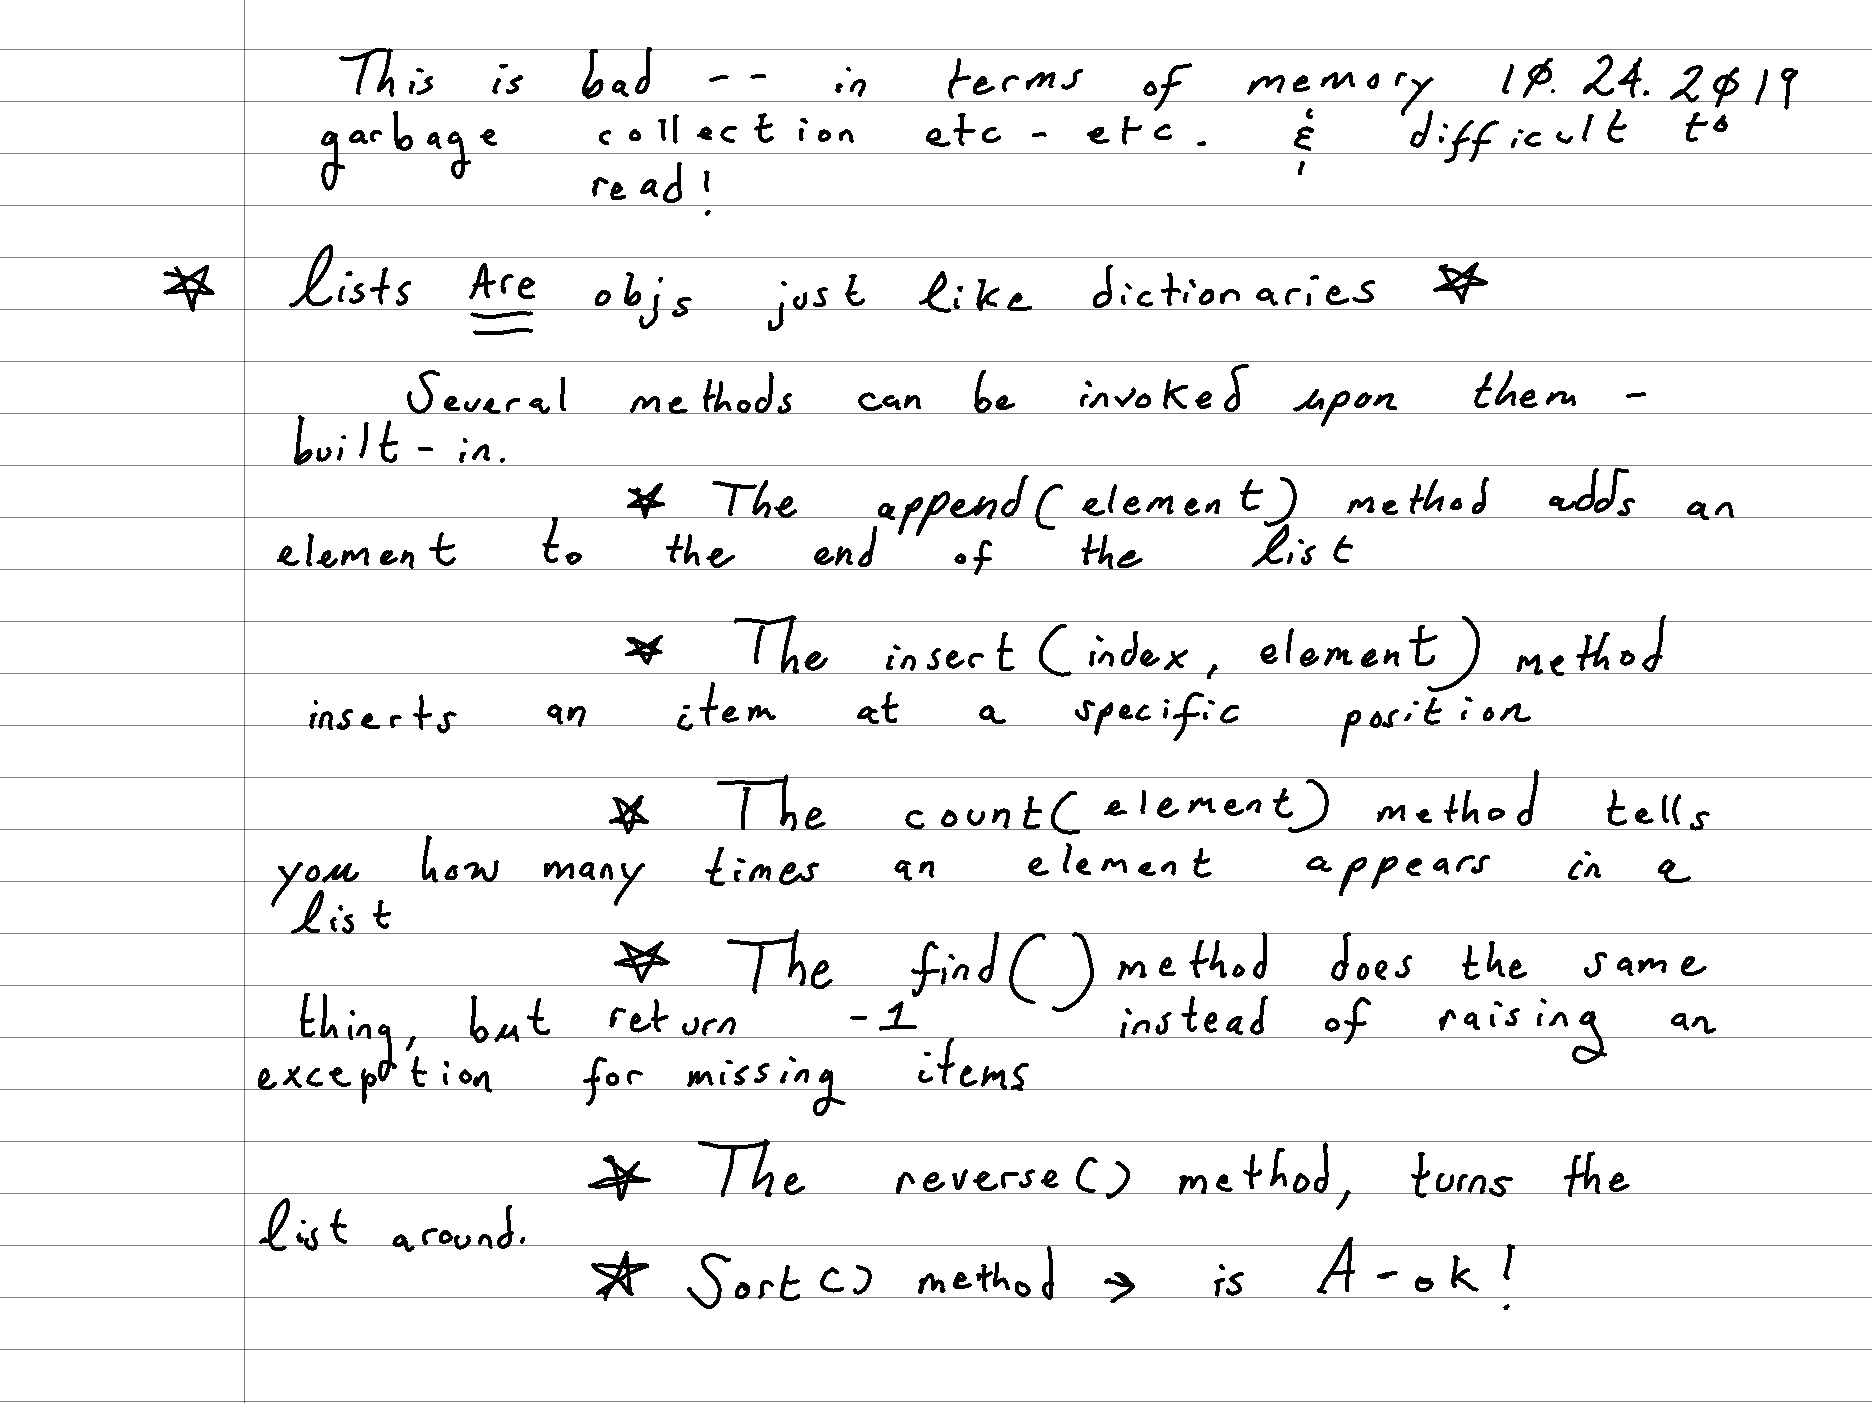 This is bad -- in terms of memory 10.24.2019
garbage collection etc - etc. & difficult to
read!
☆ lists Are objs just like dictionaries ☆
Several methods can be invoked upon them -
built-in.
☆ The append(element) method adds an
element to the end of the list
☆ The insert(index, element) method
inserts an item at a specific position
☆ The count(element) method tells
you how many times an element appears in a
list
☆ The find() method does the same
thing, but return -1 instead of raising an
exception for missing items
☆ The reverse() method, turns the
list around.
☆ Sort() method → is A-ok!